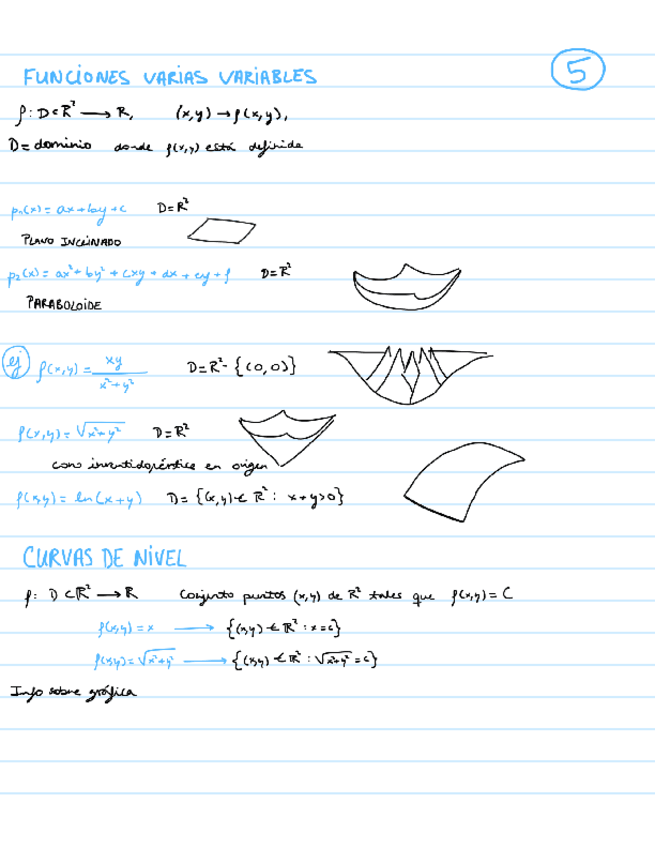 FUNCIONES VARIAS VARIABLES
5
f: D⊂R² → R, (x,y) → f(x,y),
D = dominio donde f(x,y) está definida
p₁(x) = ax + by + c D=R²
PLANO INCLINADO
p₂(x) = ax² + by² + cxy + dx + ey + f D=R²
PARABOLOIDE
ej f(x,y) = xy / x²+y² D=R²- {(0,0)}
f(x,y) = √x²+y² D=R²
cono invertido, vértice en origen
f(x,y) = ln(x+y) D= {(x,y) ∈ R² : x+y>0}
CURVAS DE NIVEL
f: D⊂R² → R Conjunto puntos (x,y) de R² tales que f(x,y) = C
f(x,y) = x → {(x,y) ∈ R² : x=c}
f(x,y) = √x²+y² → {(x,y) ∈ R² : √x²+y² = c}
Info sobre gráfica